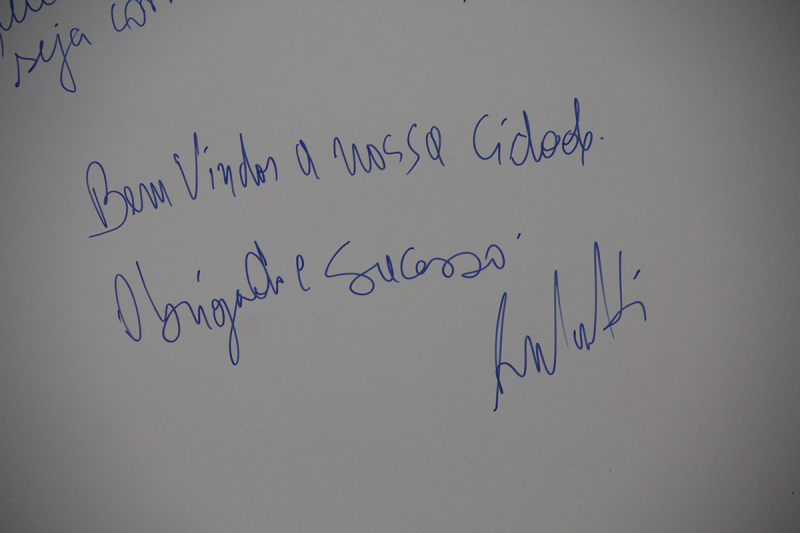 seja
Bem Vindos a nossa cidade.
Obrigado e sucesso.